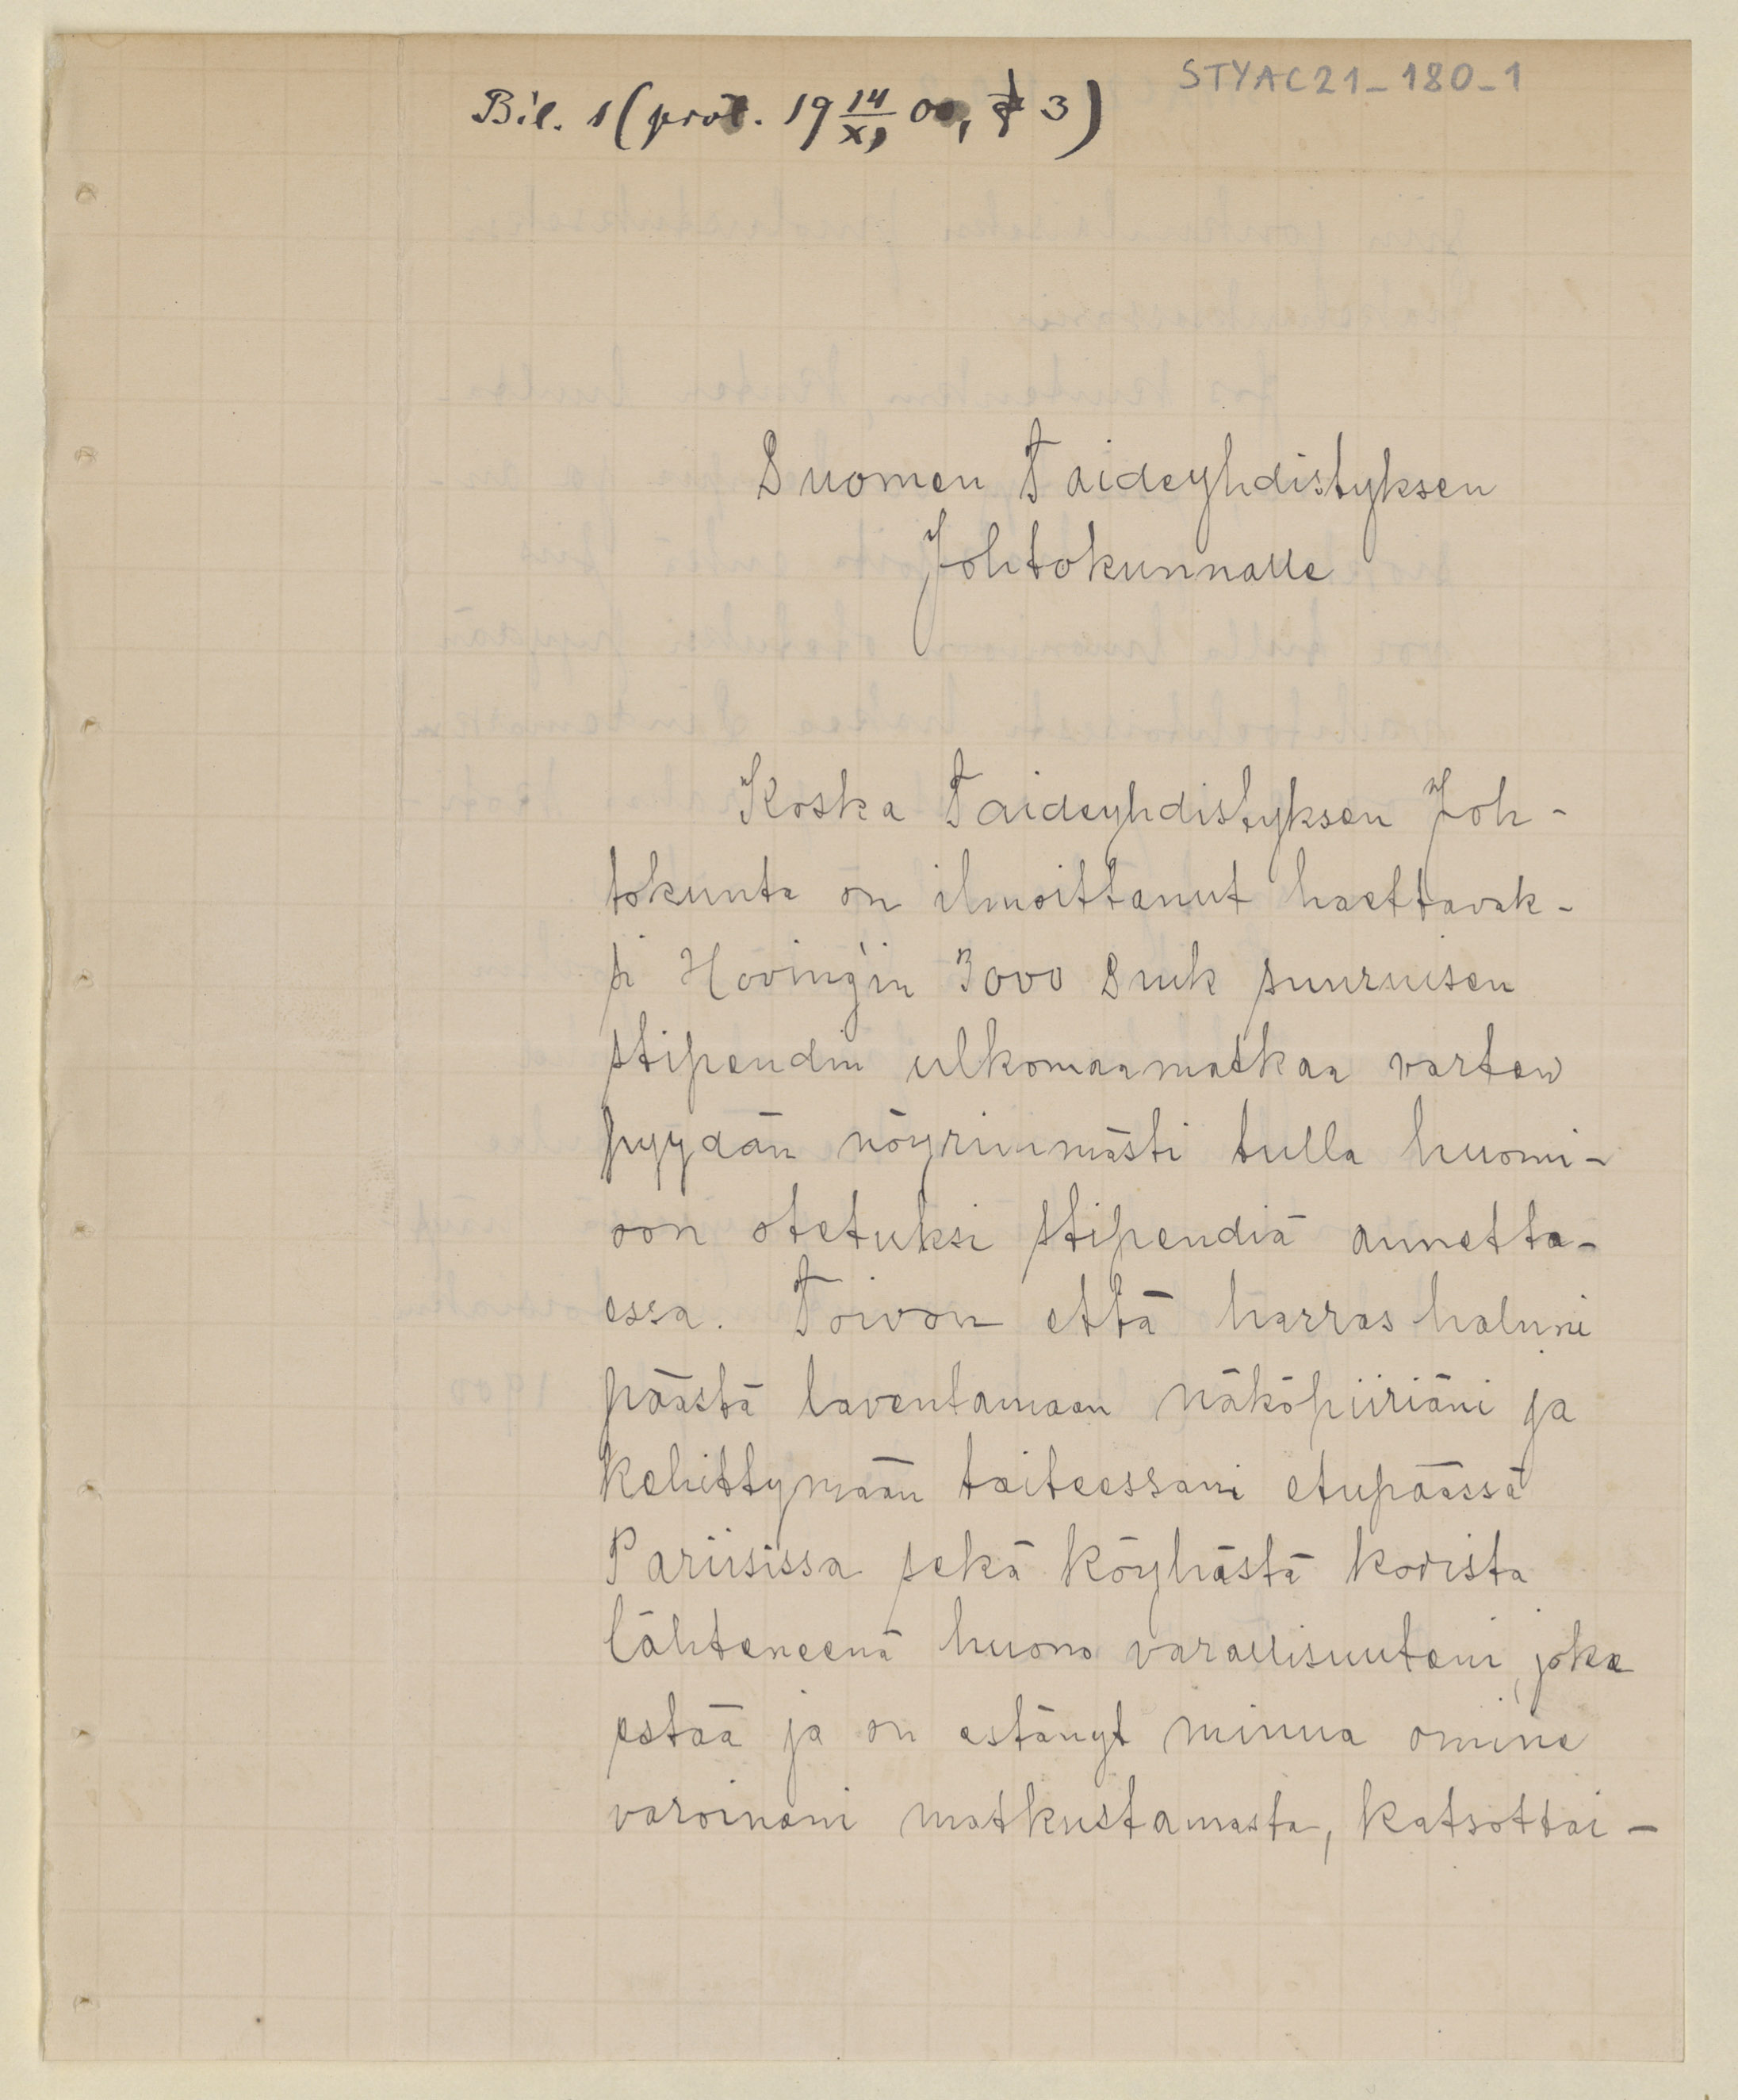 STYAC21_180_1
Bil. 1 (prot. 19 14/XI 00, § 3)
Suomen Taideyhdistyksen
Johtokunnalle
Koska Taideyhdistyksen Joh-
tokunta on ilmoittanut haettavak-
si Hovingin 3000 Smk suuruisen
stipendin ulkomaamatkaa varten
pyydän nöyrimmästi tulla huomi-
oon otetuksi stipendiä annetta-
essa. Toivon että harras haluni
päästä laventamaan näköpiiriäni ja
kehittymään taiteessani etupäässä
Pariisissa sekä köyhästä kodista
lähteneenä huono varallisuuteni, joka
estää ja on estänyt minua omine
varoineni matkustamasta, katsottai-